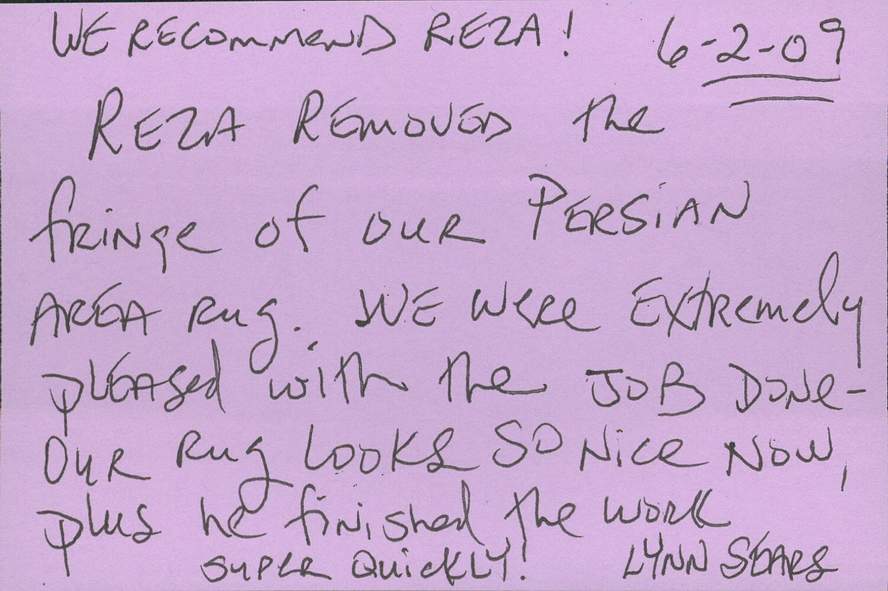 WE RECOMMEND REZA! 6-2-09
REZA REMOVED the
fringe of our PERSIAN
AREA rug. WE were EXtremely
pLEASed with the JOB DONe-
OUR Rug LOOKS SO Nice NOW,
plus he finished the WORK
SUPER QuickLY! LYNN SEARS